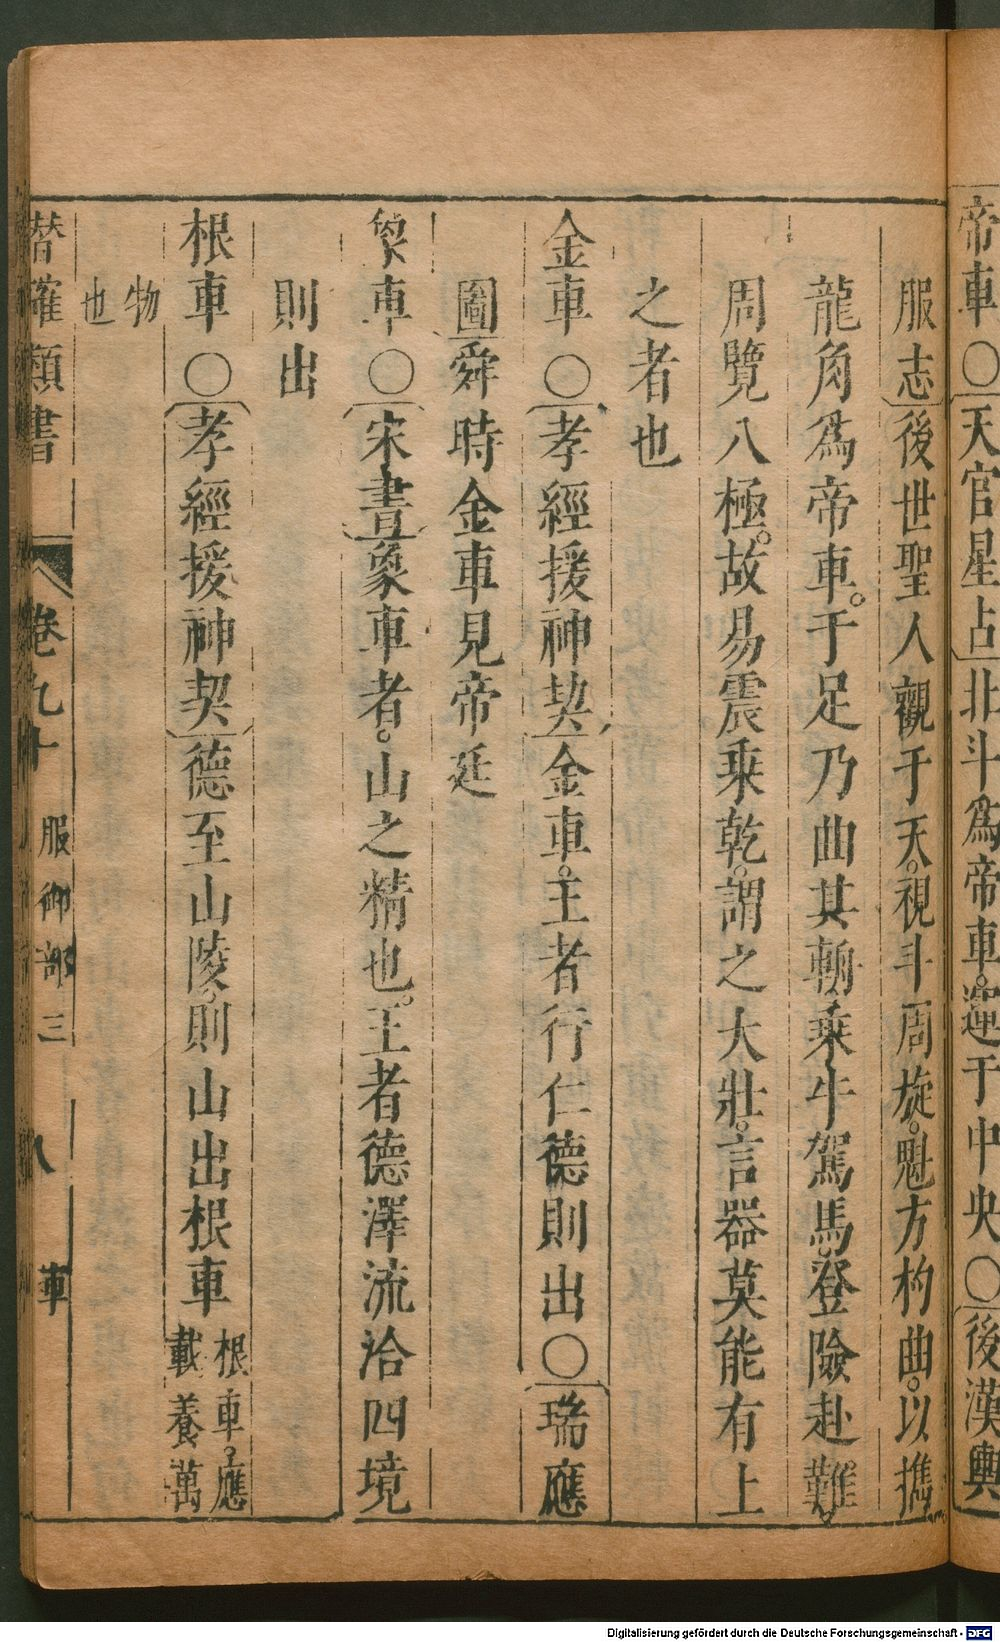 帝車〇天官星占北斗爲帝車運于中央〇後漢輿
服志後世聖人觀于天視斗周旋魁方杓曲以攜
龍角爲帝車于足乃曲其輈乘牛駕馬登險赴難
周覽八極故易震乘乾謂之大壯言器莫能有上
之者也
金車〇孝經援神契金車王者行仁德則出〇瑞應
圖舜時金車見帝廷
象車〇宋書象車者山之精也王者德澤流洽四境
則出
根車〇孝經援神契德至山陵則山出根車根車應
載養萬
物
也
類書 卷九十 服御部三 八 車
Digitalisierung gefördert durch die Deutsche Forschungsgemeinschaft - DFG